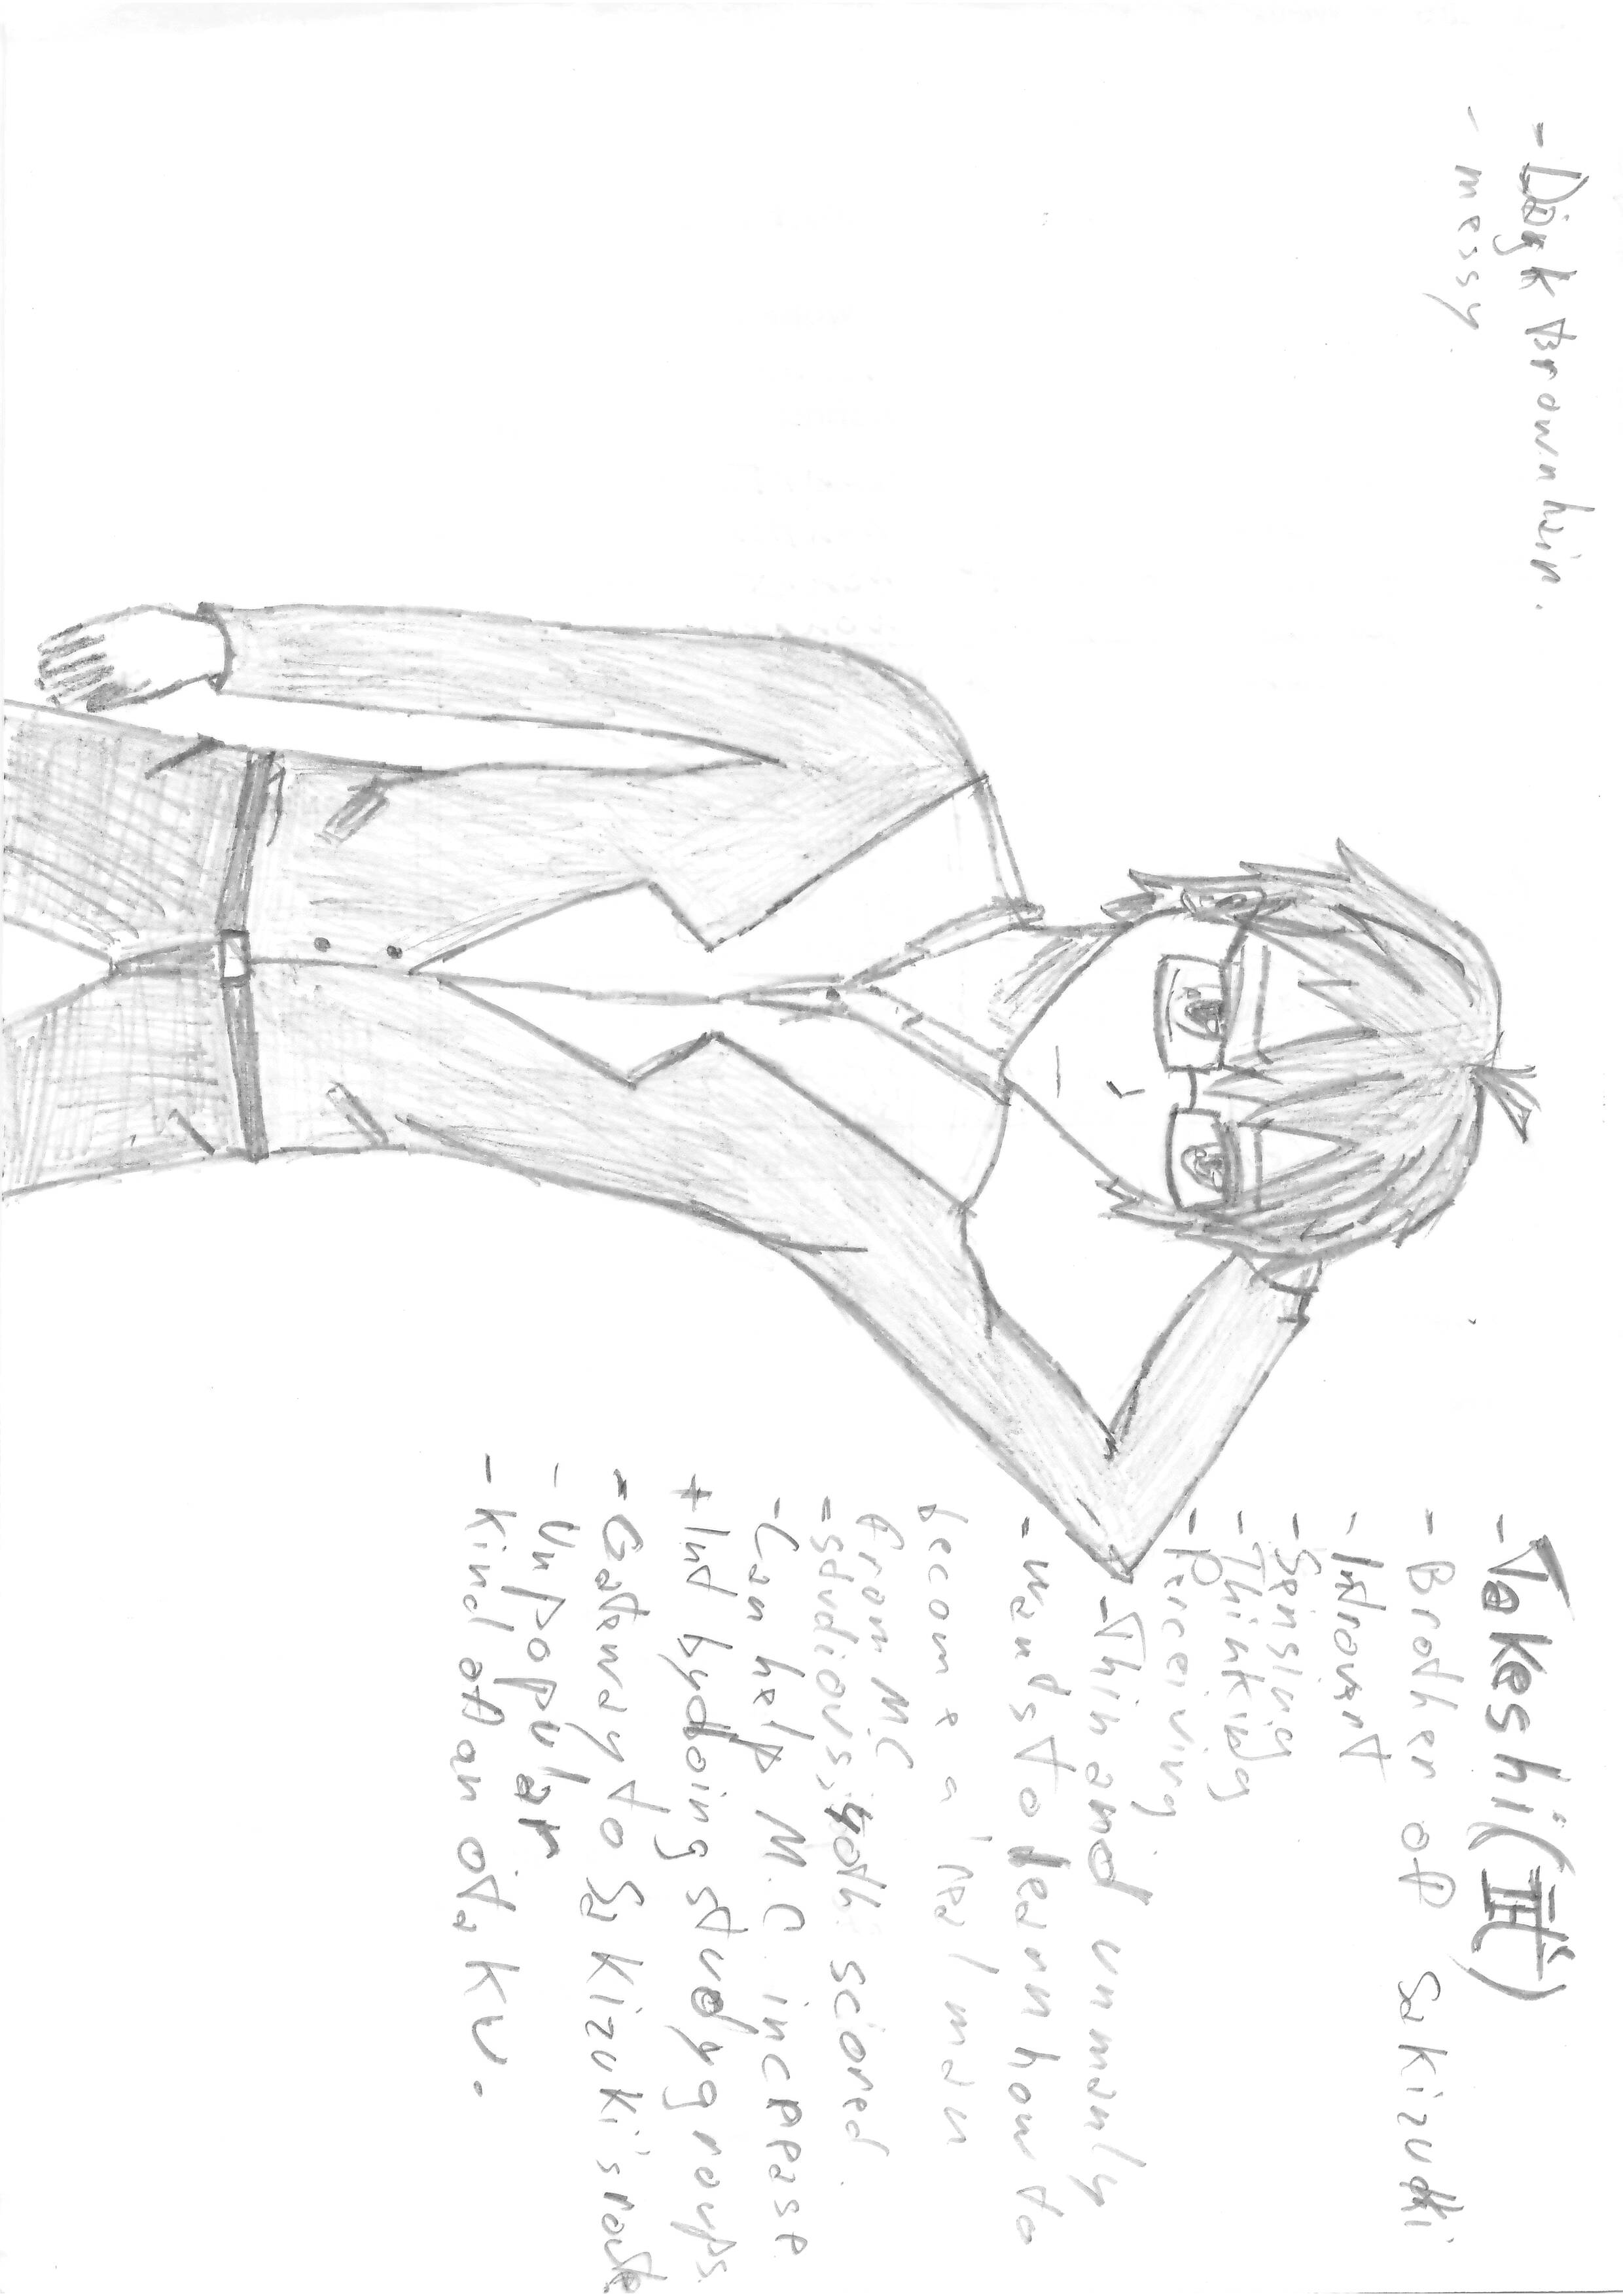 - Dark Brown hair.
- messy
- Takeshi (武)
- Brother of Sakizuki
- Introvert
- Sensing
- Thinking
- Perceiving
- Thin and unmanly
- wants to learn how to
become a 'real man
from M.C
- studious, yoth scioned
- Can help M.C. increase
+ Int by doing study groups.
- Gateway to Sakizuki's route
- Unpopular
- kind of an otaku.